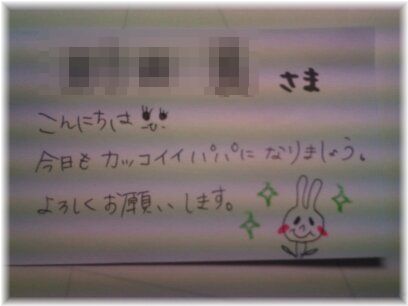 さま
こんにちは
今日も カッコイイ パパに なりましょう。
よろしく お願い します。